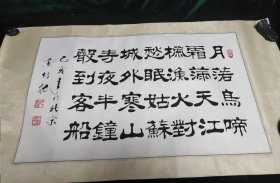 月落烏啼
霜滿天江
楓漁火對
愁眠姑蘇
城外寒山
寺夜半鐘
聲到客船
北京